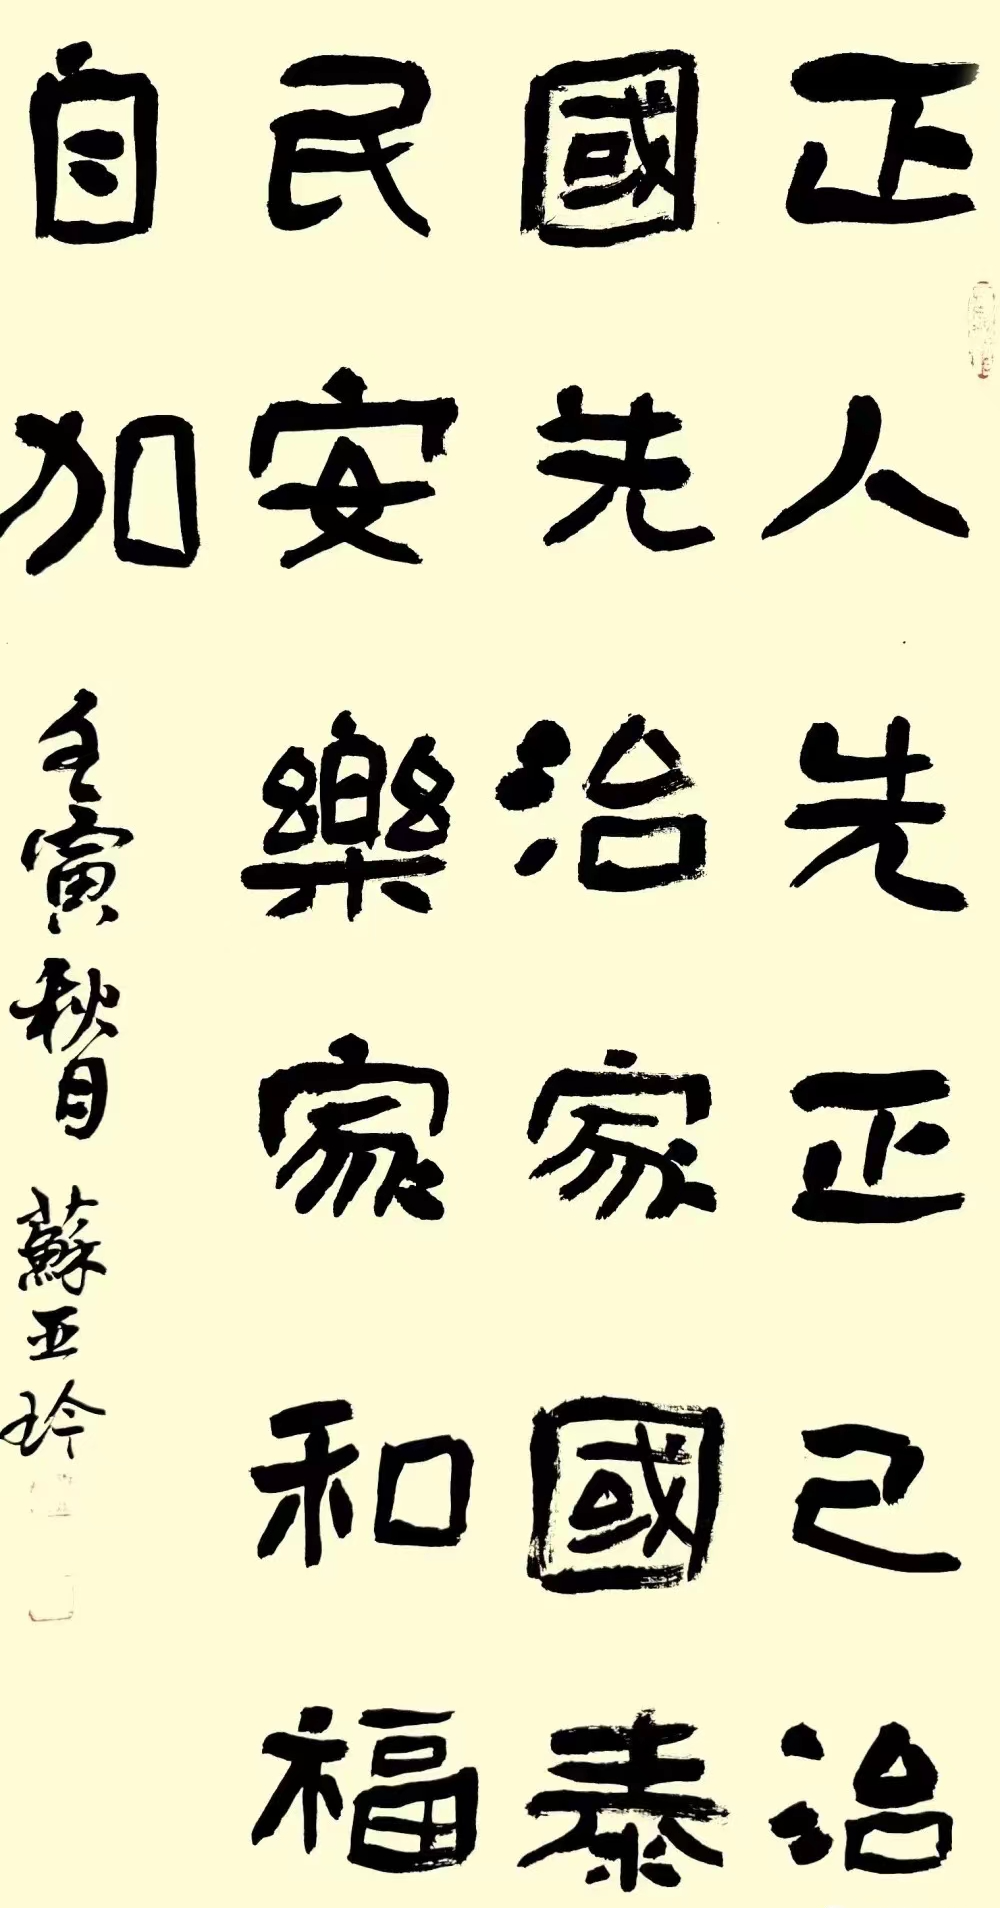 正人先正己治
國先治家國泰
民安樂家和福
自加
壬寅秋月
蘇亚玲